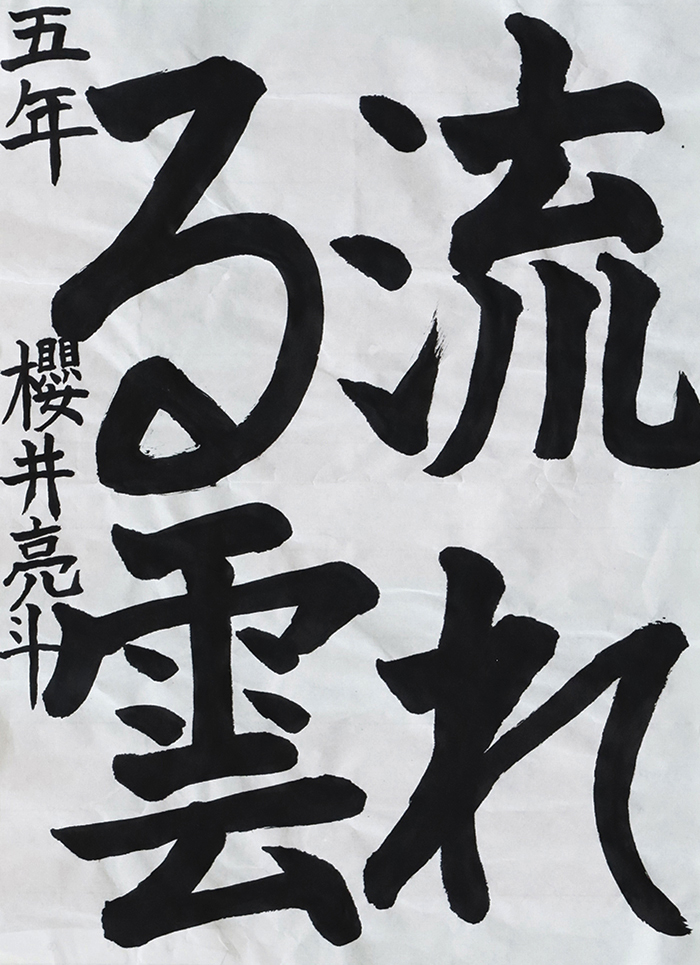 流れ
る雲
五年 櫻井亮斗